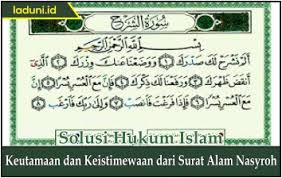 laduni.id
سورة الشرح
بسم الله الرحمن الرحيم
ألم نشرح لك صدرك ۝١ ووضعنا عنك وزرك ۝٢ الذي
أنقض ظهرك ۝٣ ورفعنا لك ذكرك ۝٤ فإن مع العسر يسرا ۝٥ إن
مع العسر يسرا ۝٦ فإذا فرغت فانصب ۝٧ وإلى ربك فارغب ۝٨
Solusi Hukum Islam
Keutamaan dan Keistimewaan dari Surat Alam Nasyroh